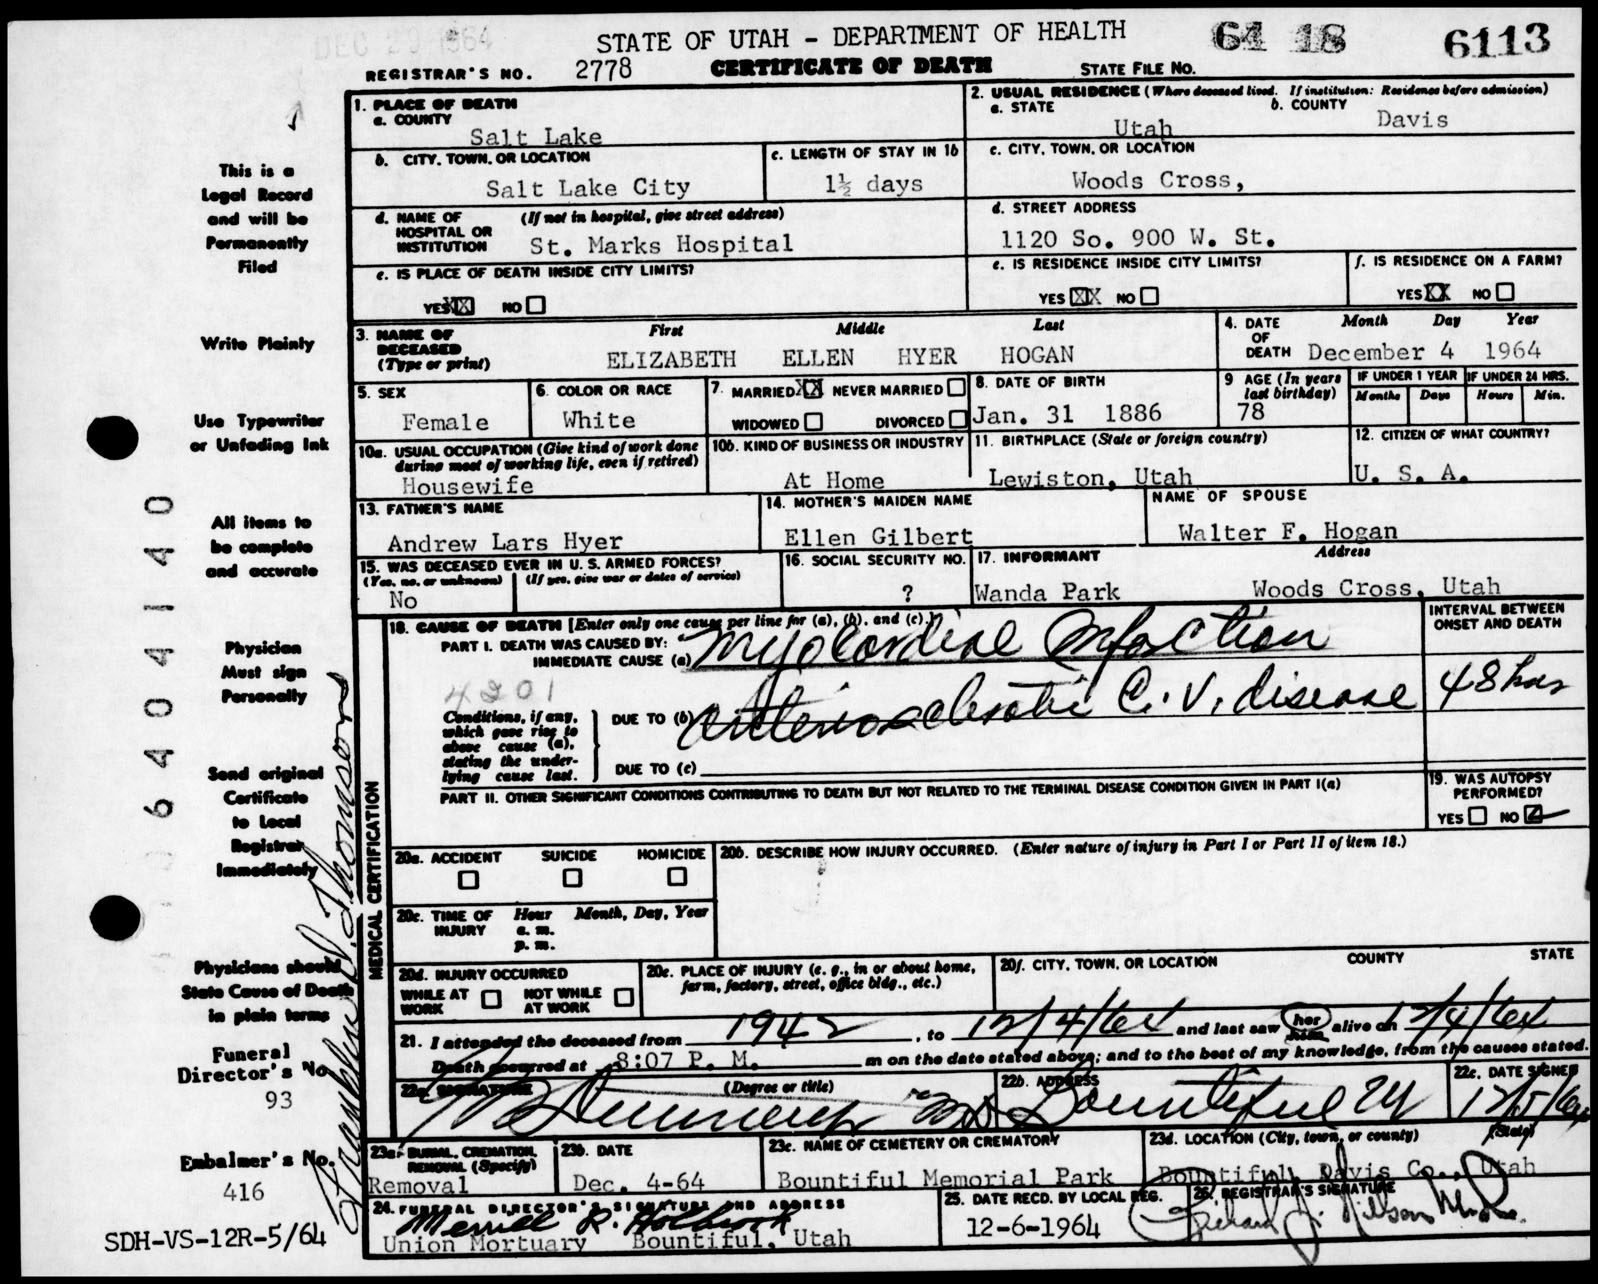 DEC 29 1964
STATE OF UTAH - DEPARTMENT OF HEALTH
64 18 6113
REGISTRAR'S NO. 2778 CERTIFICATE OF DEATH STATE FILE NO.
1. PLACE OF DEATH
a. COUNTY
Salt Lake
2. USUAL RESIDENCE (Where deceased lived. If institution: Residence before admission)
a. STATE b. COUNTY
Utah Davis
b. CITY, TOWN, OR LOCATION
Salt Lake City
c. LENGTH OF STAY IN 1b
1½ days
c. CITY, TOWN, OR LOCATION
Woods Cross,
d. NAME OF HOSPITAL OR INSTITUTION (If not in hospital, give street address)
St. Marks Hospital
d. STREET ADDRESS
1120 So. 900 W. St.
e. IS PLACE OF DEATH INSIDE CITY LIMITS?
YES XX NO
e. IS RESIDENCE INSIDE CITY LIMITS?
YES XX NO
f. IS RESIDENCE ON A FARM?
YES XX NO
3. NAME OF DECEASED (Type or print)
First Middle Last
ELIZABETH ELLEN HYER HOGAN
4. DATE OF DEATH
Month Day Year
December 4 1964
5. SEX
Female
6. COLOR OR RACE
White
7. MARRIED XX NEVER MARRIED
WIDOWED DIVORCED
8. DATE OF BIRTH
Jan. 31 1886
9 AGE (In years last birthday)
78
IF UNDER 1 YEAR IF UNDER 24 HRS.
Months Days Hours Min.
10a. USUAL OCCUPATION (Give kind of work done during most of working life, even if retired)
Housewife
10b. KIND OF BUSINESS OR INDUSTRY
At Home
11. BIRTHPLACE (State or foreign country)
Lewiston, Utah
12. CITIZEN OF WHAT COUNTRY?
U. S. A.
13. FATHER'S NAME
Andrew Lars Hyer
14. MOTHER'S MAIDEN NAME
Ellen Gilbert
NAME OF SPOUSE
Walter F. Hogan
15. WAS DECEASED EVER IN U. S. ARMED FORCES?
(Yes, no, or unknown) (If yes, give war or dates of service)
No
16. SOCIAL SECURITY NO.
?
17. INFORMANT Address
Wanda Park Woods Cross, Utah
MEDICAL CERTIFICATION
18. CAUSE OF DEATH [Enter only one cause per line for (a), (b), and (c).]
PART I. DEATH WAS CAUSED BY:
IMMEDIATE CAUSE (a) Myocardial Infarction
4201
Conditions, if any, which gave rise to above cause (a), stating the underlying cause last.
DUE TO (b) Arteriosclerotic C. V. disease
DUE TO (c)
INTERVAL BETWEEN ONSET AND DEATH
48 hrs
PART II. OTHER SIGNIFICANT CONDITIONS CONTRIBUTING TO DEATH BUT NOT RELATED TO THE TERMINAL DISEASE CONDITION GIVEN IN PART I(a)
19. WAS AUTOPSY PERFORMED?
YES NO
20a. ACCIDENT SUICIDE HOMICIDE
20b. DESCRIBE HOW INJURY OCCURRED. (Enter nature of injury in Part I or Part II of item 18.)
20c. TIME OF INJURY Hour Month, Day, Year
a. m.
p. m.
20d. INJURY OCCURRED
WHILE AT WORK NOT WHILE AT WORK
20e. PLACE OF INJURY (e. g., in or about home, farm, factory, street, office bldg., etc.)
20f. CITY, TOWN, OR LOCATION COUNTY STATE
21. I attended the deceased from 1942, to 12/4/64 and last saw her him alive on 12/4/64
Death occurred at 8:07 P. M. m on the date stated above; and to the best of my knowledge, from the causes stated.
22a. SIGNATURE (Degree or title)
MD
22b. ADDRESS
Bountiful
22c. DATE SIGNED
12/5/64
23a. BURIAL, CREMATION, REMOVAL (Specify)
Removal
23b. DATE
Dec. 4-64
23c. NAME OF CEMETERY OR CREMATORY
Bountiful Memorial Park
23d. LOCATION (City, town, or county) (State)
Bountiful, Davis Co., Utah
24. FUNERAL DIRECTOR'S SIGNATURE AND ADDRESS
Merrill R. Holbrook
Union Mortuary Bountiful, Utah
25. DATE RECD. BY LOCAL REG.
12-6-1964
26. REGISTRAR'S SIGNATURE
Richard J. Nelson M.D.
This is a
Legal Record
and will be
Permanently
Filed
Write Plainly
Use Typewriter
or Unfading Ink
All items to
be complete
and accurate
Physician
Must sign
Personally
Send original
Certificate
to Local
Registrar
Immediately
Physicians should
State Cause of Death
in plain terms
Funeral
Director's No.
93
Embalmer's No.
416
SDH-VS-12R-5/64
64 04140
Franklin D. Thomson